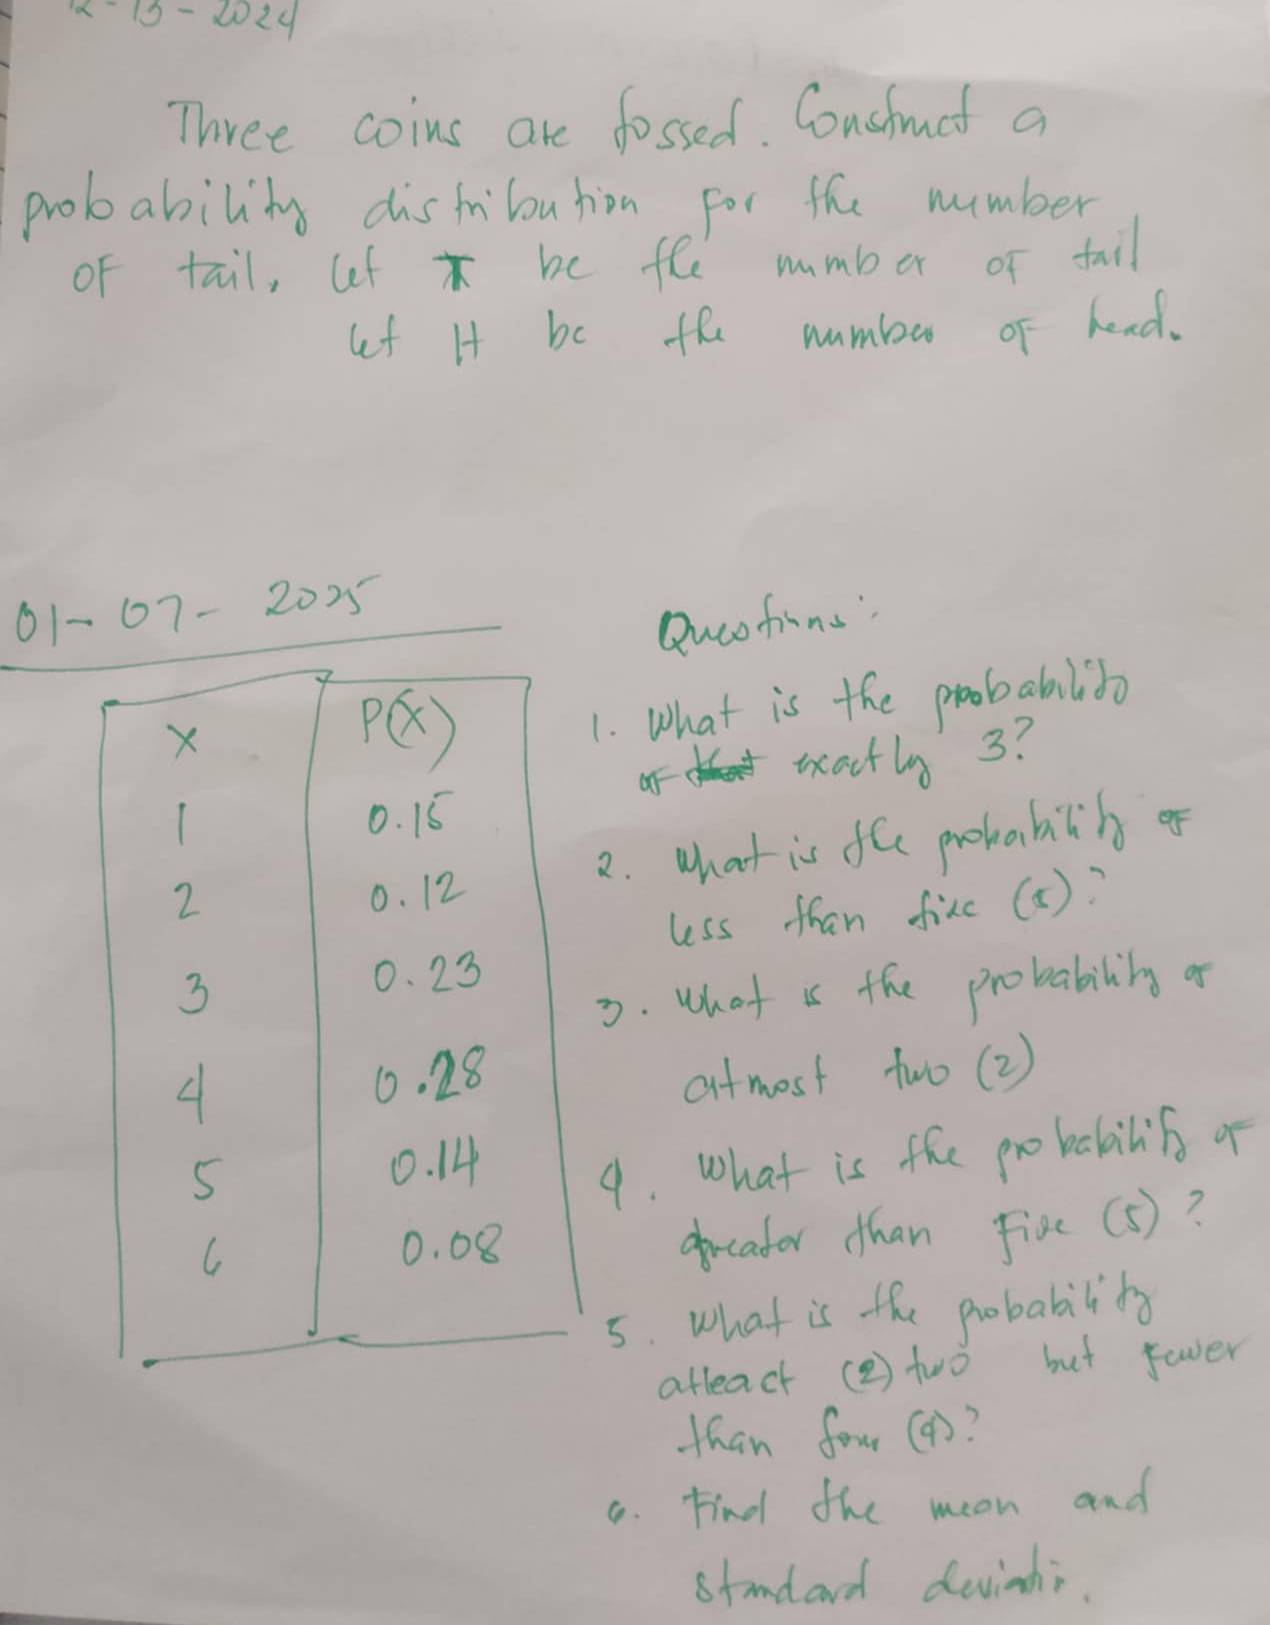 12-13-2024
Three coins are tossed. Construct a
probability distribution for the number
of tail. let T be the number of tail
let H be the number of head.
01-07-2025
X P(X)
1 0.15
2 0.12
3 0.23
4 0.28
5 0.14
6 0.08
Questions:
1. What is the probability
of exactly 3?
2. What is the probability of
less than five (5)?
3. What is the probability of
atmost two (2)
4. What is the probability of
greater than five (5)?
5. What is the probability
atleact (2) two but fewer
than four (4)?
6. Find the mean and
standard deviati.